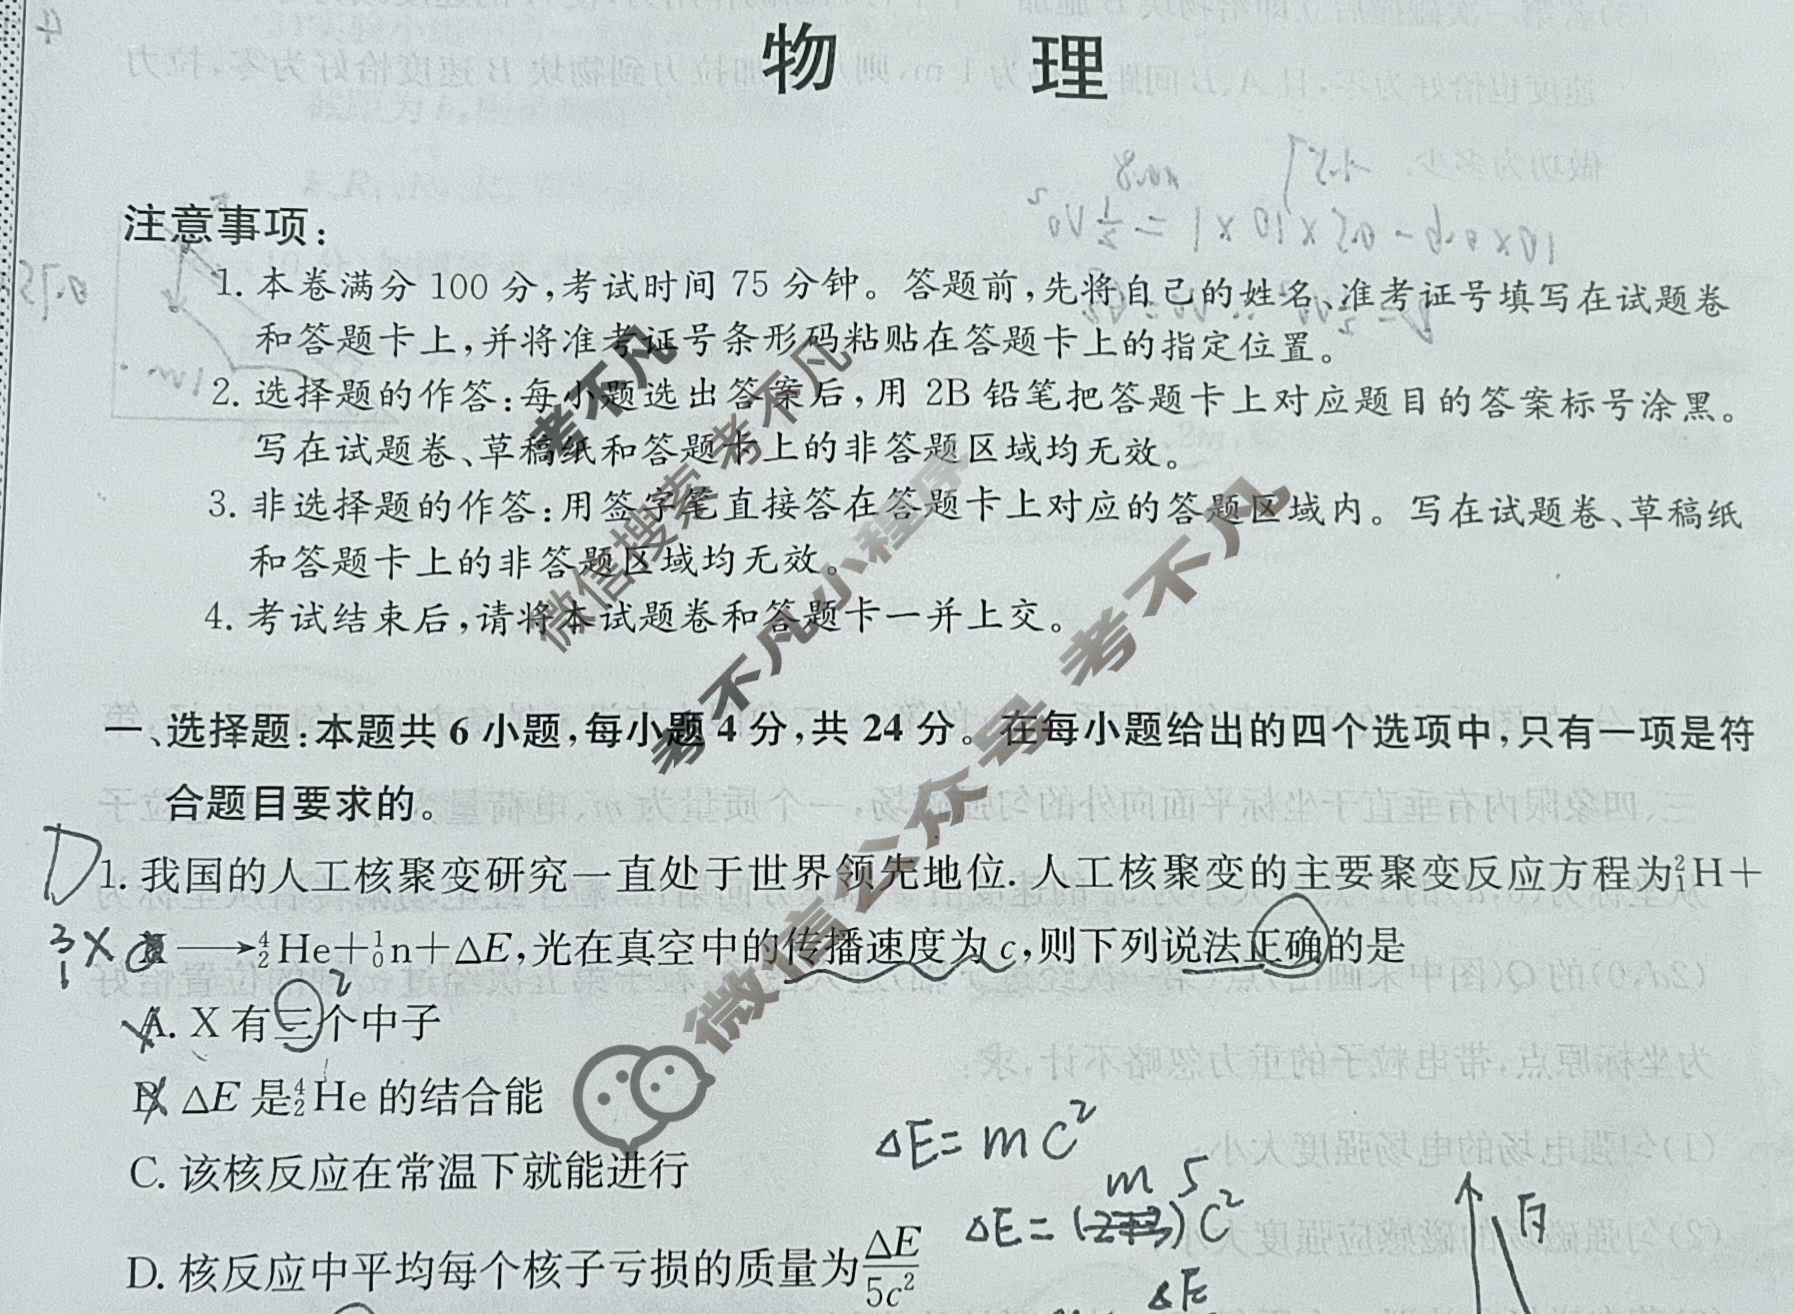 物 理
注意事项:
1. 本卷满分 100 分,考试时间 75 分钟。答题前,先将自己的姓名、准考证号填写在试题卷
和答题卡上,并将准考证号条形码粘贴在答题卡上的指定位置。
2. 选择题的作答:每小题选出答案后,用 2B 铅笔把答题卡上对应题目的答案标号涂黑。
写在试题卷、草稿纸和答题卡上的非答题区域均无效。
3. 非选择题的作答:用签字笔直接答在答题卡上对应的答题区域内。写在试题卷、草稿纸
和答题卡上的非答题区域均无效。
4. 考试结束后,请将本试题卷和答题卡一并上交。
考不凡
微信搜索考不凡
考不凡小程序
微信公众号 考不凡
一、选择题:本题共 6 小题,每小题 4 分,共 24 分。在每小题给出的四个选项中,只有一项是符
合题目要求的。
D
1. 我国的人工核聚变研究一直处于世界领先地位. 人工核聚变的主要聚变反应方程为²₁H+
³₁X
X⟶⁴₂He+¹₀n+ΔE,光在真空中的传播速度为 c,则下列说法正确的是
2
A. X 有三个中子
B. ΔE 是⁴₂He 的结合能
C. 该核反应在常温下就能进行
D. 核反应中平均每个核子亏损的质量为ΔE/5c²
ΔE=mc²
m 5
ΔE=( )c²
ΔE